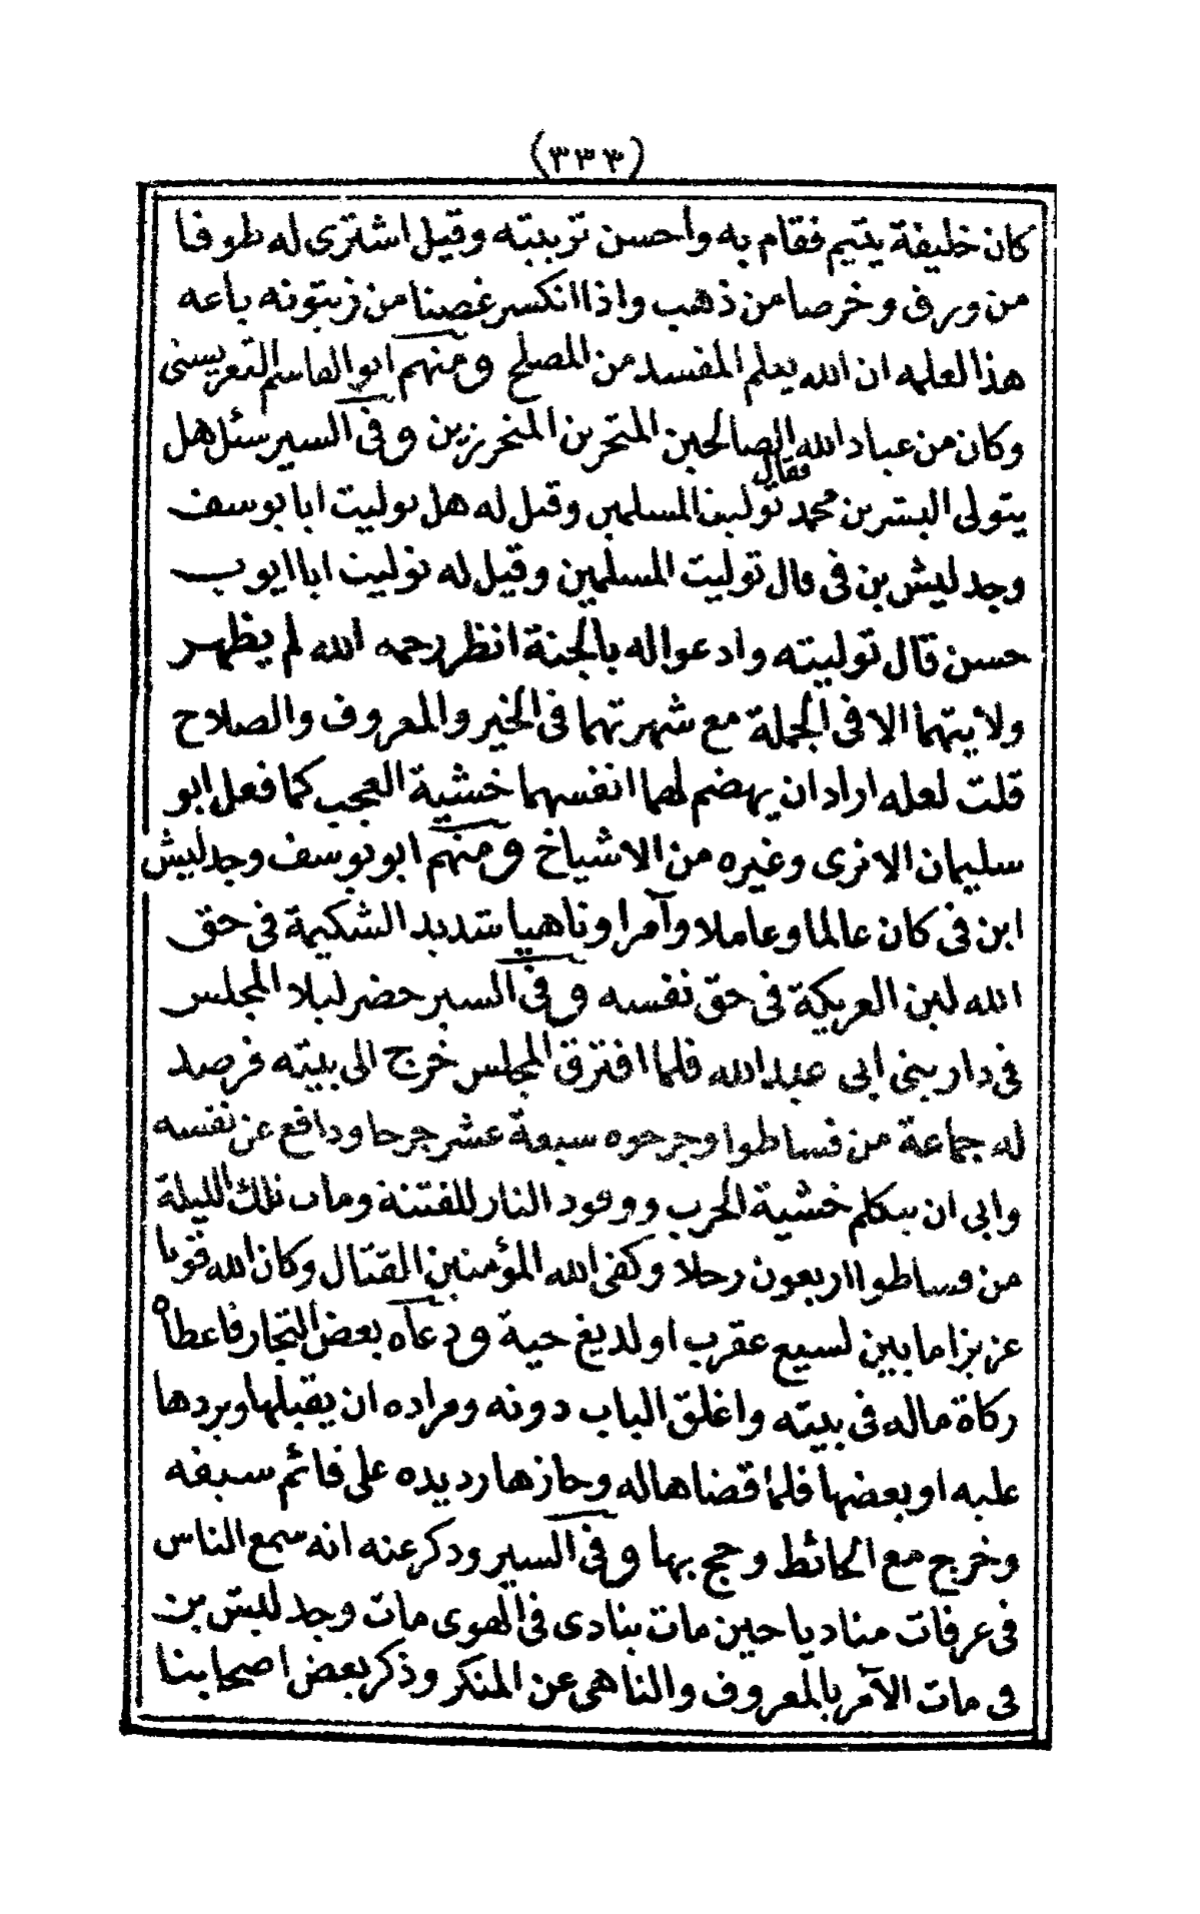 (٣٣٣)
كان خليفة يتيم فقام به واحسن تربيته وقيل اشترى له طوفا
من ورق وخرصا من ذهب واذا انكسر غصنا من زيتونه باعه
هذا لعلمه ان الله يعلم المفسد من المصلح ومنهم ابو القاسم
وكان من عباد الله الصالحين المتحرين المتحرزين وفى السير سئل هل
يتولى البشر بن محمد فقال توليت المسلمين وقيل له هل توليت ابا يوسف
وجدليش بن فى قال توليت المسلمين وقيل له توليت ابا ايوب
حسن قال توليته وادعوا له بالجنة انظر رحمه الله لم يظهر
ولايتهما الا فى الجملة مع شهرتهما فى الخير والمعروف والصلاح
قلت لعله اراد ان يهضم لهما انفسهما خشية العجب كما فعل ابو
سليمان الانرى وغيره من الاشياخ ومنهم ابو يوسف وجدليش
ابن فى كان عالما وعاملا وآمرا وناهيا شديد الشكيمة فى حق
الله لين العريكة فى حق نفسه وفى السير حضر ليلا المجلس
فى دار بنى ابى عبد الله فلما افترق المجلس خرج الى بيته فرصد
له جماعة من فساطوا وجرحوه سبعة عشر جرحا ودافع عن نفسه
وابى ان يتكلم خشية الحرب ووقود النار للفتنة ومات تلك الليلة
من فساطوا اربعون رجلا وكفى الله المؤمنين القتال وكان الله قويا
عزيزا ما بين لسيع عقرب او لديغ حية ودعاه بعض التجار فاعطاه
زكاة ماله فى بيته واغلق الباب دونه ومراده ان يقبلها ويردها
عليه او بعضها فلما قضاها له وحازها رد يده على قائم سيفه
وخرج مع الحائط وحج بها وفى السير وذكر عنه انه سمع الناس
فى عرفات مناديا حين مات ينادى فى الهوى مات وجدليش بن
فى مات الآمر بالمعروف والناهى عن المنكر وذكر بعض اصحابنا